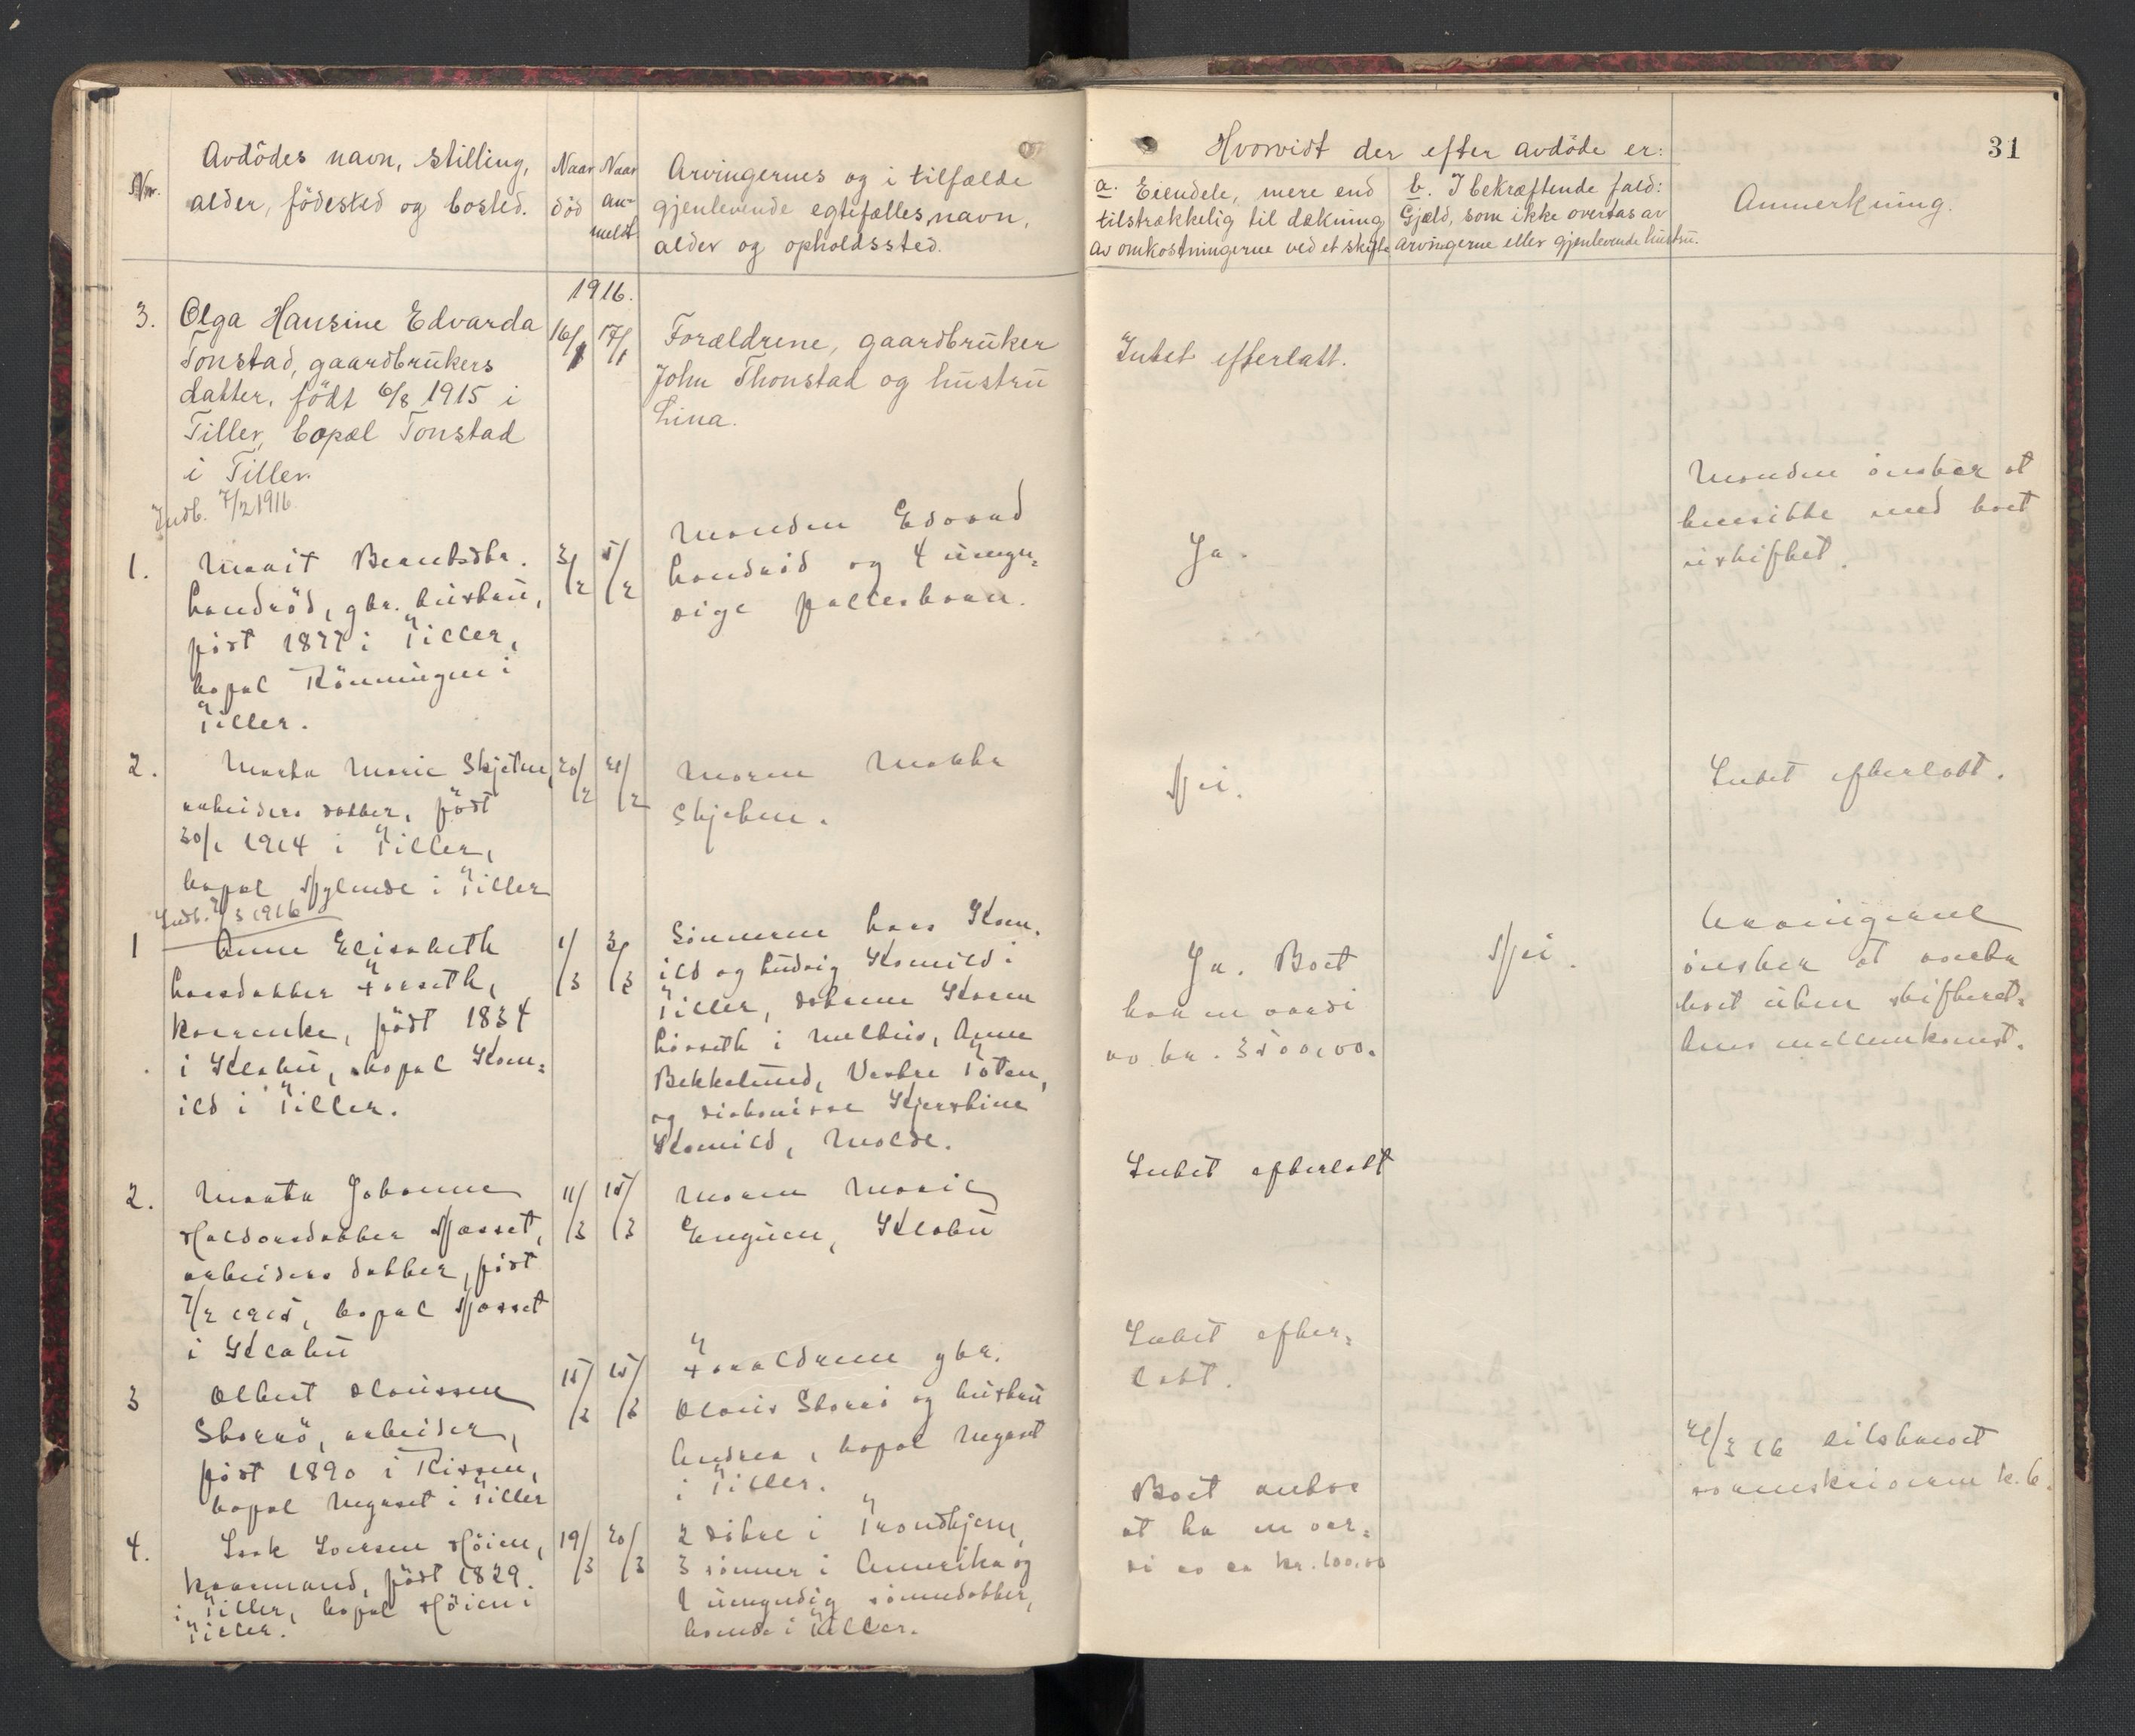 31
Nr.
Avdödes navn, stilling,
alder, födested og bosted.
Naar
död
Naar
an-
meldt
Arvingernes og i tilfælde
gjenlevende egtefælles navn,
alder og opholdssted.
Hvorvidt der efter avdöde er:
a. Eiendele, mere end
tilstrækkelig til dækning
av omkostningerne ved et skifte
b. I bekræftende fald:
Gjæld, som ikke overtas av
arvingerne eller gjenlevende hustru.
Anmerkning.
1916.
3. Olga Hansine Edvarda
Tonstad, gaardbrukers
datter, födt 6/8 1915 i
Tiller, bopæl Tonstad
i Tiller.
16/1 17/1
Forældrene, gaardbruker
John Thonstad og hustru
Lina.
Intet efterlatt.
Indb. 7/2 1916.
1. Marit Berntsdtr.
Sandrød, gbr. hustru,
födt 1877 i Tiller,
bopæl Rönningen i
Tiller.
3/2 5/2
Manden Edvard
Sandröd og 4 umyn=
dige fællesbarn.
Ja.
Manden önsker at
hensitte med boet
uskiftet.
2. Marta Marie Skjetne,
arbeiders datter, födt
30/1 1914 i Tiller,
bopæl Nylende i Tiller
20/2 21/2
Moren Marta
Skjetne.
Nei.
Intet efterlatt.
Indb. 2/3 1916
1 Anne Elisabeth
Larsdatter Forseth,
kaarenke, födt 1834
i Klæbu, bopæl Kom=
ild i Tiller.
1/3 3/3
Sönnerne Lars Kom.
ild og Ludvig Komild i
Tiller, döttrene Karen
Losseth i Melhus, Anne
Bekkelund, Vestre Toten,
og diakonisse Kjerstine
Komild, Molde.
Ja. Boet
har en værdi
av kr. 3500,00.
Nei.
Arvingerne
önsker at overta
boet uten skifteret=
tens mellemkomst.
2. Marta Johanne
Haldorsdatter Nasset,
arbeiders datter, födt
7/2 1915, bopæl Nasset
i Klæbu
11/3 15/3
Moren Marie
Enguen, Klæbu
Intet efterlatt
3 Albert Olaussen
Storrö, arbeider,
födt 1890 i Rissen,
bopæl Nygaset i Tiller
15/3 15/3
Forældrene gbr.
Olaus Storrö og hustru
Andrea, bopæl Nygaset
i Tiller.
Intet efter=
latt.
4. Isak Larsen Höien,
kaarmand, födt 1829
i Tiller, bopæl Höien i
Tiller.
19/3 20/3
2 dötre i Trondhjem,
3 sönner i Amerika og
1 umyndig sönnedatter,
boende i Tiller.
Boet antas
at ha en vær=
di av ca kr. 100,00
21/3 16 tilskrevet
sorenskriveren k. b.